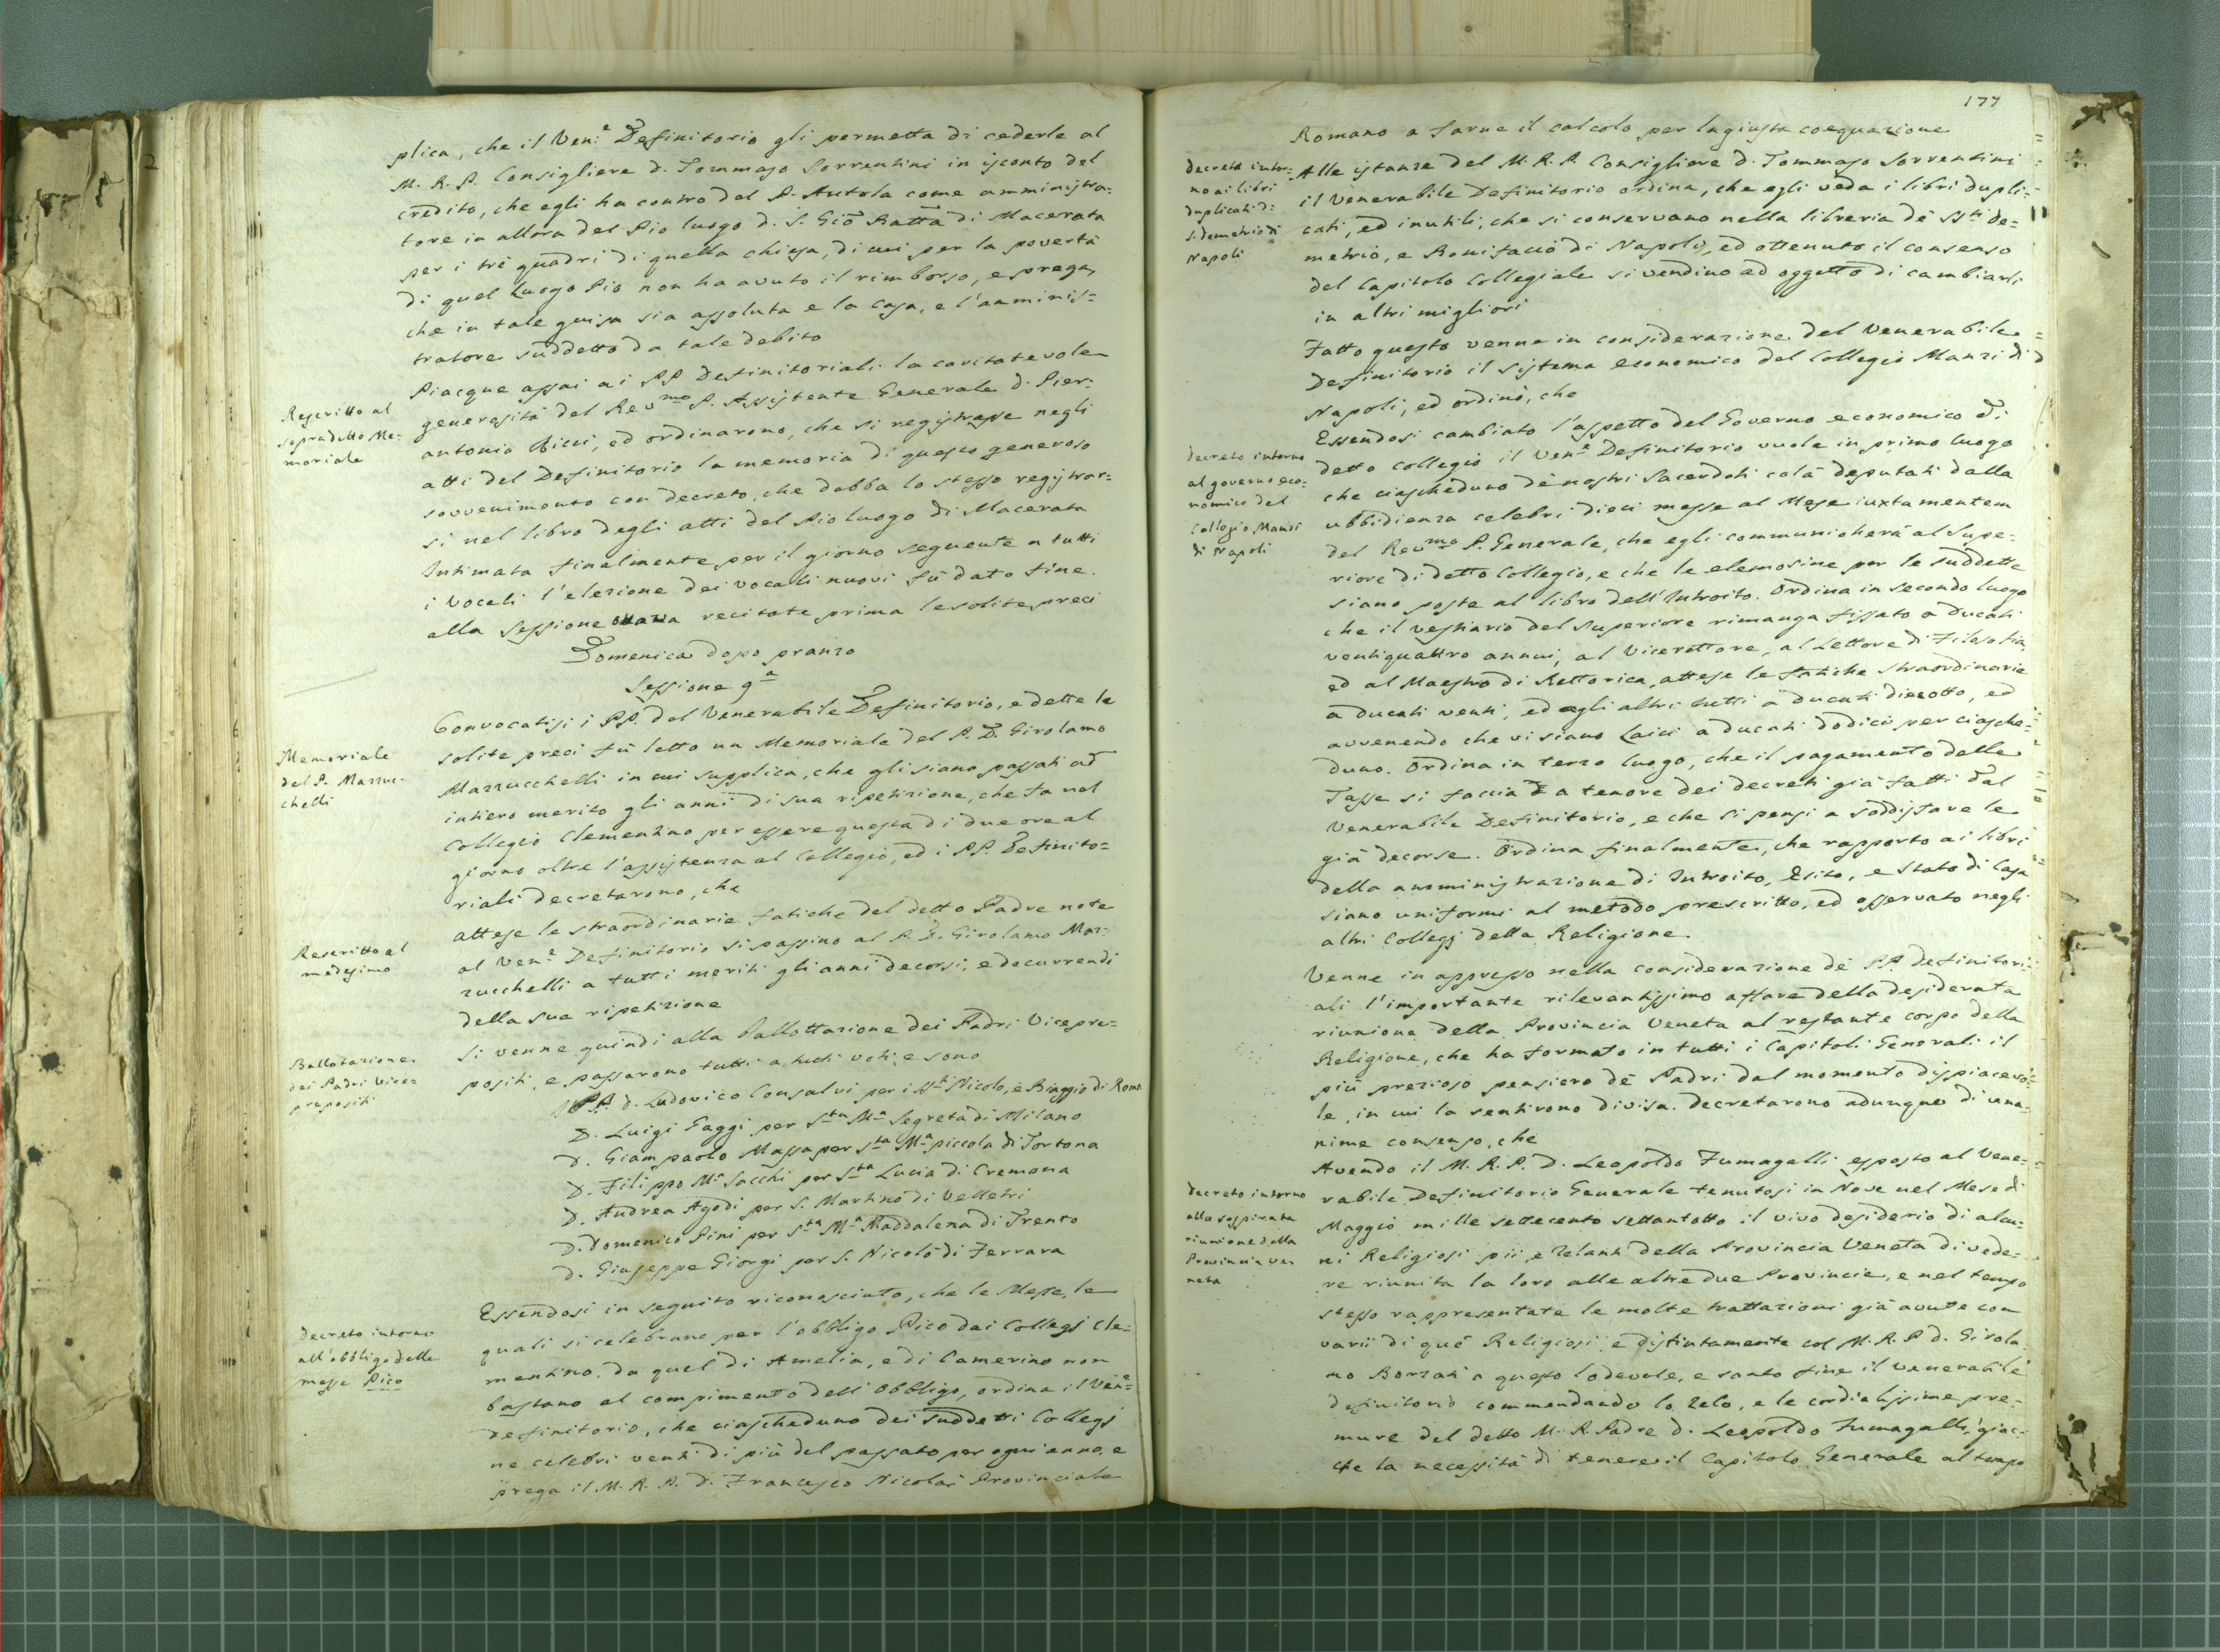 plica, che il Ven.e Definitorio gli permetta di cederle al
M. R. P. Consigliere d. Tommaso Sorrentini in isconto del
credito, che egli ha contro del P. Autola come amministra-
tore in allora del Pio luogo d. S. Gio Batta di Macerata
per i trè quadri di quella chiesa, di cui per la povertà
di quel Luogo Pio non ha avuto il rimborso, e prega,
che in tale guisa sia assoluta e la casa, e l'amminis=
tratore suddetto da tale debito
Rescritto al
sopradetto Me-
moriale
Piacque assai ai PP. Definitoriali la caritatevole
generosità del Revmo P. Assistente Generale d. Pier-
antonio Ricci, ed ordinarono, che si registrasse negli
atti del Definitorio la memoria di questo generoso
sovvenimento con decreto, che debba lo stesso registrar-
si nel libro degli atti del Pio luogo di Macerata
Intimata finalmente per il giorno seguente a tutti
i Vocali l'elezione dei vocali nuovi fù dato fine
alla Sessione ottava recitate prima le solite preci
Domenica dopo pranzo
Sessione 9a
Memoriale
del P. Mazzuc-
chelli
Convocatisi i PP. del Venerabile Definitorio, e dette le
solite preci fù letto un Memoriale del P. D. Girolamo
Mazzucchelli in cui supplica, che gli siano passati ad
intiero merito gli anni di sua ripetizione, che fa nel
Collegio Clementino per essere questa di due ore al
giorno oltre l'assistenza al Collegio, ed i PP. Definito=
riali decretarono, che
Rescritto al
medesimo
attese le straordinarie fatiche del detto Padre note
al Ven.e Definitorio si passino al P. D. Girolamo Maz-
zucchelli a tutti meriti gli anni decorsi, e decurrendi
della sua ripetizione
Ballotazione
dei Padri Vice-
prepositi
Si venne quindi alla Ballottazione dei Padri Vicepre=
positi, e passarono tutti a tutti voti, e sono
PP. d. Ludovico Consalvi per i SSti Nicolo, e Biaggio di Roma
D. Luigi Gaggi per Sta Ma Segreta di Milano
D. Giampaolo Massa per Sta Ma piccola di Tortona
D. Filippo Ma Sacchi per Sta Lucia di Cremona
D. Andrea Agodi per S. Martino di Velletri
D. Domenico Pini per Sta Ma Maddalena di Trento
D. Giuseppe Giorgi per S. Nicolò di Ferrara
Decreto intorno
all'obbligo delle
messe Pico
Essendosi in seguito riconosciuto, che le Messe, le
quali si celebrano per l'obbligo Pico dai Collegj Cle=
mentino, da quel di Amelia, e di Camerino non
bastano al compimento dell'obbligo, ordina il Ven.e
Definitorio, che ciascheduno dei suddetti Collegj
ne celebri venti di più del passato per ogni anno, e
prega il M. R. P. D. Francesco Nicolai Provinciale
177
Romano a farne il calcolo per la giusta coequazione
decreto intor-
no ai libri
duplicati di
S. demetrio di
Napoli
Alle istanze del M. R. P. Consigliere d. Tommaso Sorrentini
il Venerabile Definitorio ordina, che egli veda i libri dupli=
cati, ed inutili, che si conservano nella libreria de' SSti De=
metrio, e Bonifacio di Napoli, ed ottenuto il consenso
del Capitolo Collegiale si vendino ad oggetto di cambiarli
in altri migliori
Fatto questo venne in considerazione del Venerabile
Definitorio il sistema economico del Collegio Manzi di
Napoli, ed ordinò, che
decreto intorno
al governo eco-
nomico del
Collegio Manzi
di Napoli
Essendosi cambiato l'aspetto del Governo economico di
detto Collegio il Ven.e Definitorio vuole in primo luogo
che ciascheduno de' nostri Sacerdoti colà deputati dalla
ubbidienza celebri dieci messe al Mese iuxta mentem
del Revmo P. Generale, che egli communicherà al Supe=
riore di detto Collegio, e che le elemosine per le suddette
siano poste al libro dell'Introito. Ordina in secondo luogo
che il vestiario del Superiore rimanga fissato a Ducati
ventiquattro annui, al Vicerettore, al Lettore di Filosofia,
ed al Maestro di Rettorica, attese le fatiche straordinarie
a ducati venti, ed agli altri tutti a ducati dieciotto, ed
avvenendo che vi siano Laici a ducati dodici per ciasche-
duno. Ordina in terzo luogo, che il pagamento delle
Tasse si faccia a tenore dei decreti già fatti dal
Venerabile Definitorio, e che si pensi a soddisfare le
già decorse. Ordina finalmente, che rapporto ai libri
della amministrazione di Introito, Esito, e Stato di Casa
siano uniformi al metodo prescritto, ed osservato negli
altri Collegj della Religione.
Venne in appresso nella considerazione de' PP. Definitori-
ali l'importante rilevantissimo affare della desiderata
riunione della Provincia Veneta al restante corpo della
Religione, che ha formato in tutti i Capitoli Generali il
più prezioso pensiero de' Padri dal momento dispiacevo-
le, in cui la sentirono divisa. decretarono adunque di una-
nime consenso, che
decreto intorno
alla sospirata
riunione della
Provincia Ve-
neta
Avendo il M. R. P. D. Leopoldo Fumagalli esposto al Vene-
rabile Definitorio Generale tenutosi in Nove nel Mese di
Maggio mille settecento settantotto il vivo desiderio di alcu-
ni Religiosi pii, e zelanti della Provincia Veneta di vede-
re riunita la loro alle altre due Provincie, e nel tempo
stesso rappresentate le molte trattazioni già avute con
varii di què Religiosi, e distintamente col M. R. P. d. Girola-
mo Borzati a questo lodevole, e santo fine il venerabile
Definitorio commendando lo zelo, e le cordialissime pre-
mure del detto M. R. Padre d. Leopoldo Fumagalli, giac-
che la necessità di tenere il Capitolo Generale al tempo